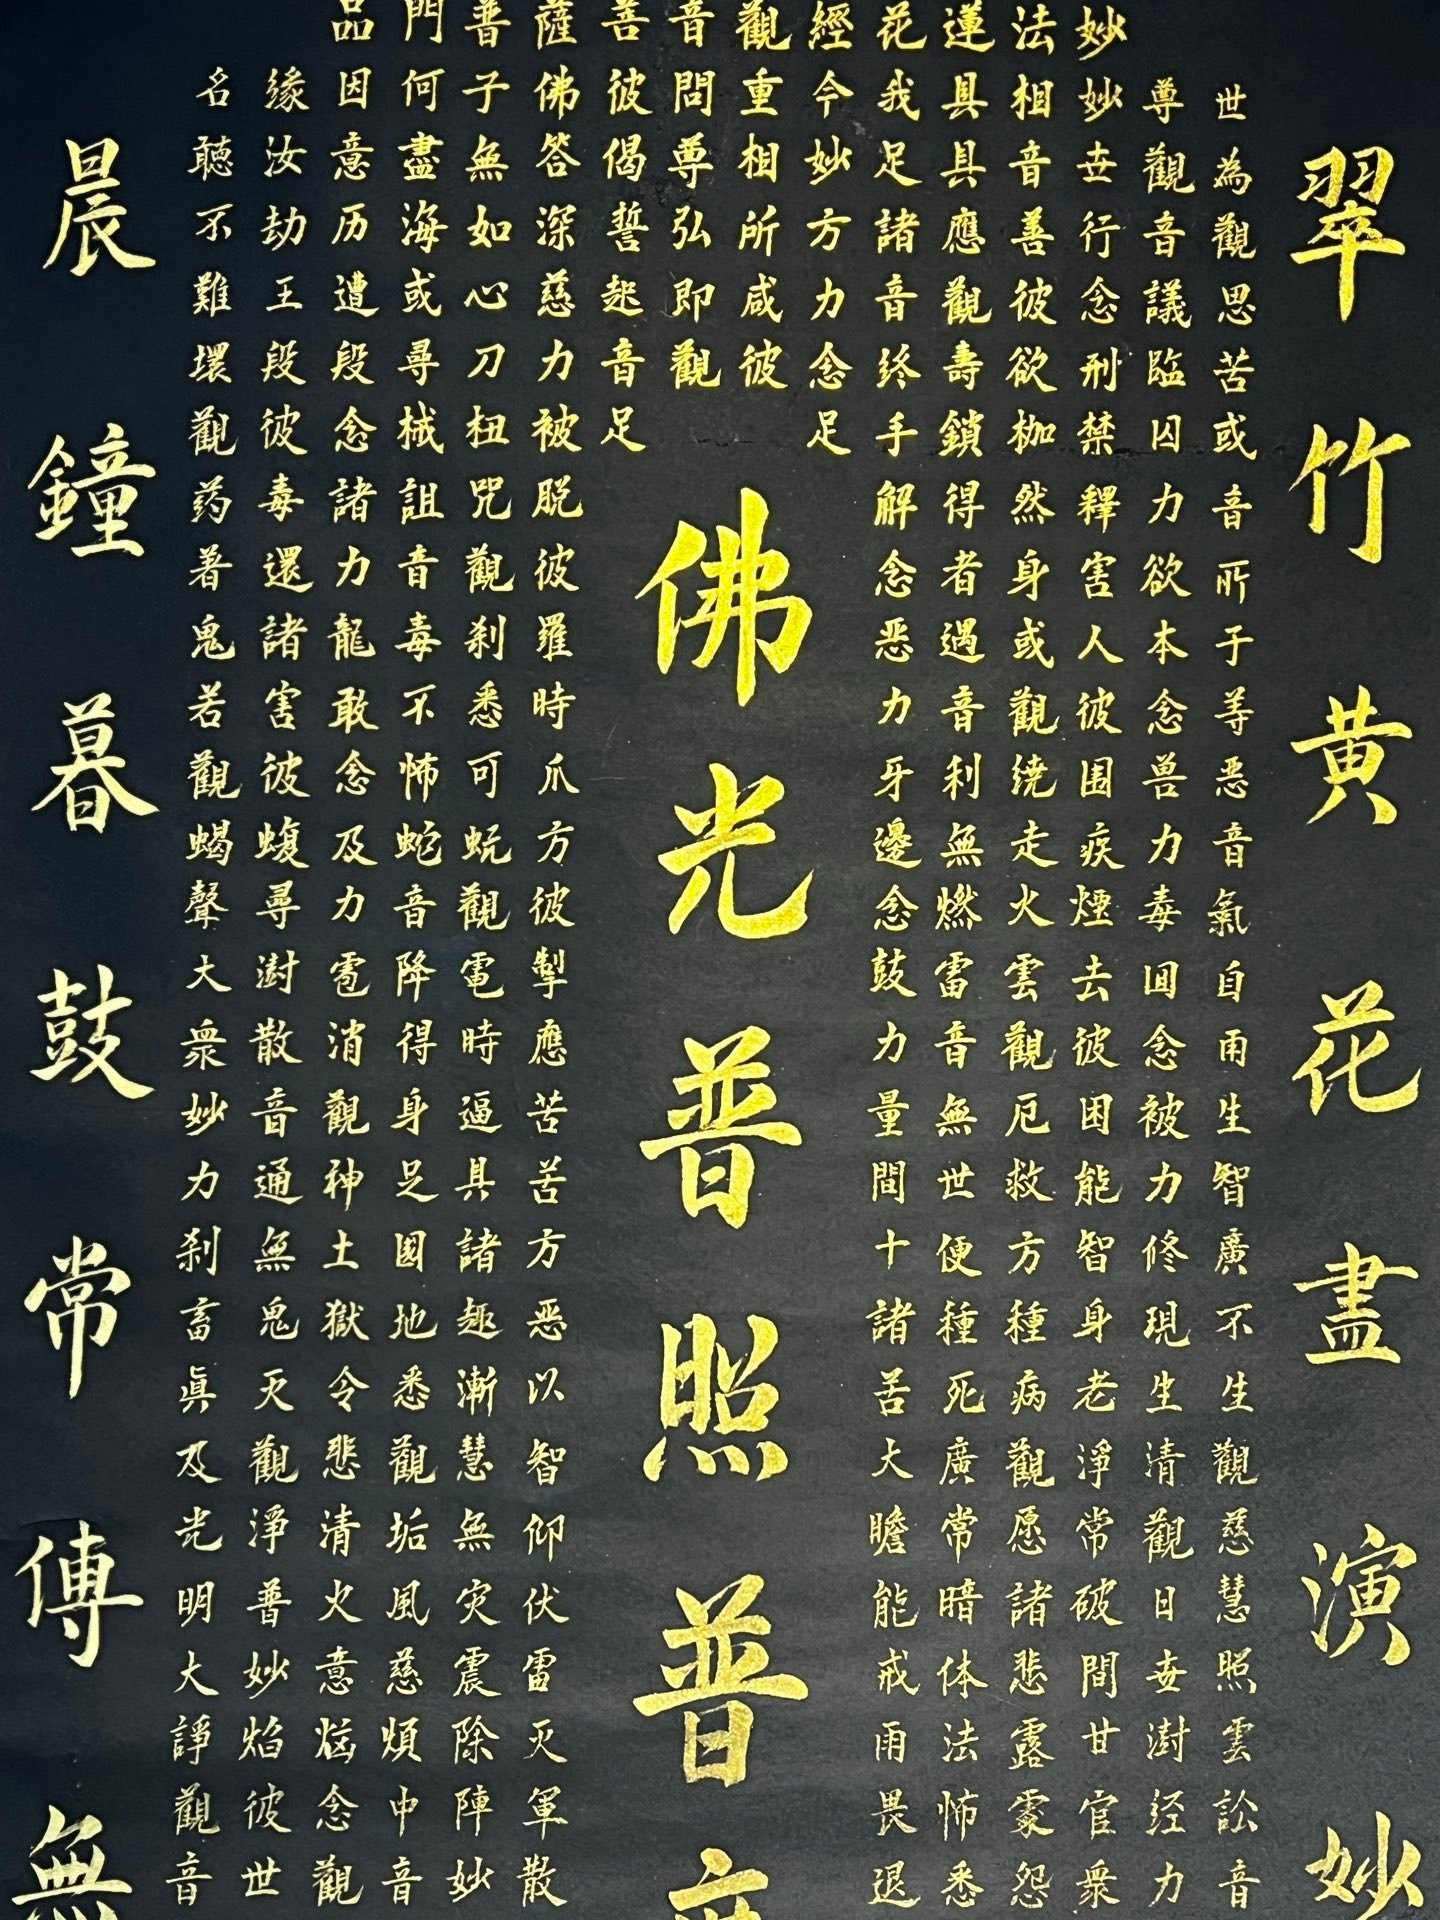 妙法蓮花經觀音菩薩普門品
翠竹黄花盡演妙
世尊妙相具我今重問彼佛子何因緣名
為觀世音具足妙相尊偈答無盡意汝聴
觀音行善應諸方所弘誓深如海历劫不
思議念彼觀音力咸即起慈心或遭王難
苦臨刑欲壽終念彼觀音力刀尋段段壞
或囚禁枷鎖手足足被杻械念彼觀
音力釋然得解脱咒詛諸毒药
所欲害身者念彼觀音力還著
于本人或遇恶羅刹毒龍諸鬼
等念彼觀音力時悉不敢害若
恶兽围繞利牙爪可怖念彼觀
音力疾走無邊方蚖蛇及蝮蝎
氣毒煙火燃念彼觀音力尋聲
自囬去雲雷鼓掣電降雹澍大
雨念彼觀音力應時得消散衆
生被困厄無量苦逼身觀音妙
智力能救世間苦具足神通力
廣修智方便十方諸國土無刹
不現身種種諸恶趣地獄鬼畜
生生老病死苦以漸悉令灭真
觀清淨觀廣大智慧觀悲觀及
慈觀常愿常瞻仰無垢清淨光
慧日破諸暗能伏灾風火普明
照世間悲体戒雷震慈意妙大
雲澍甘露法雨灭除煩惱焰諍
訟经官處怖畏軍陣中念彼觀
音力衆怨悉退散妙音觀世音
佛光普照普
晨鐘暮鼓常傳無